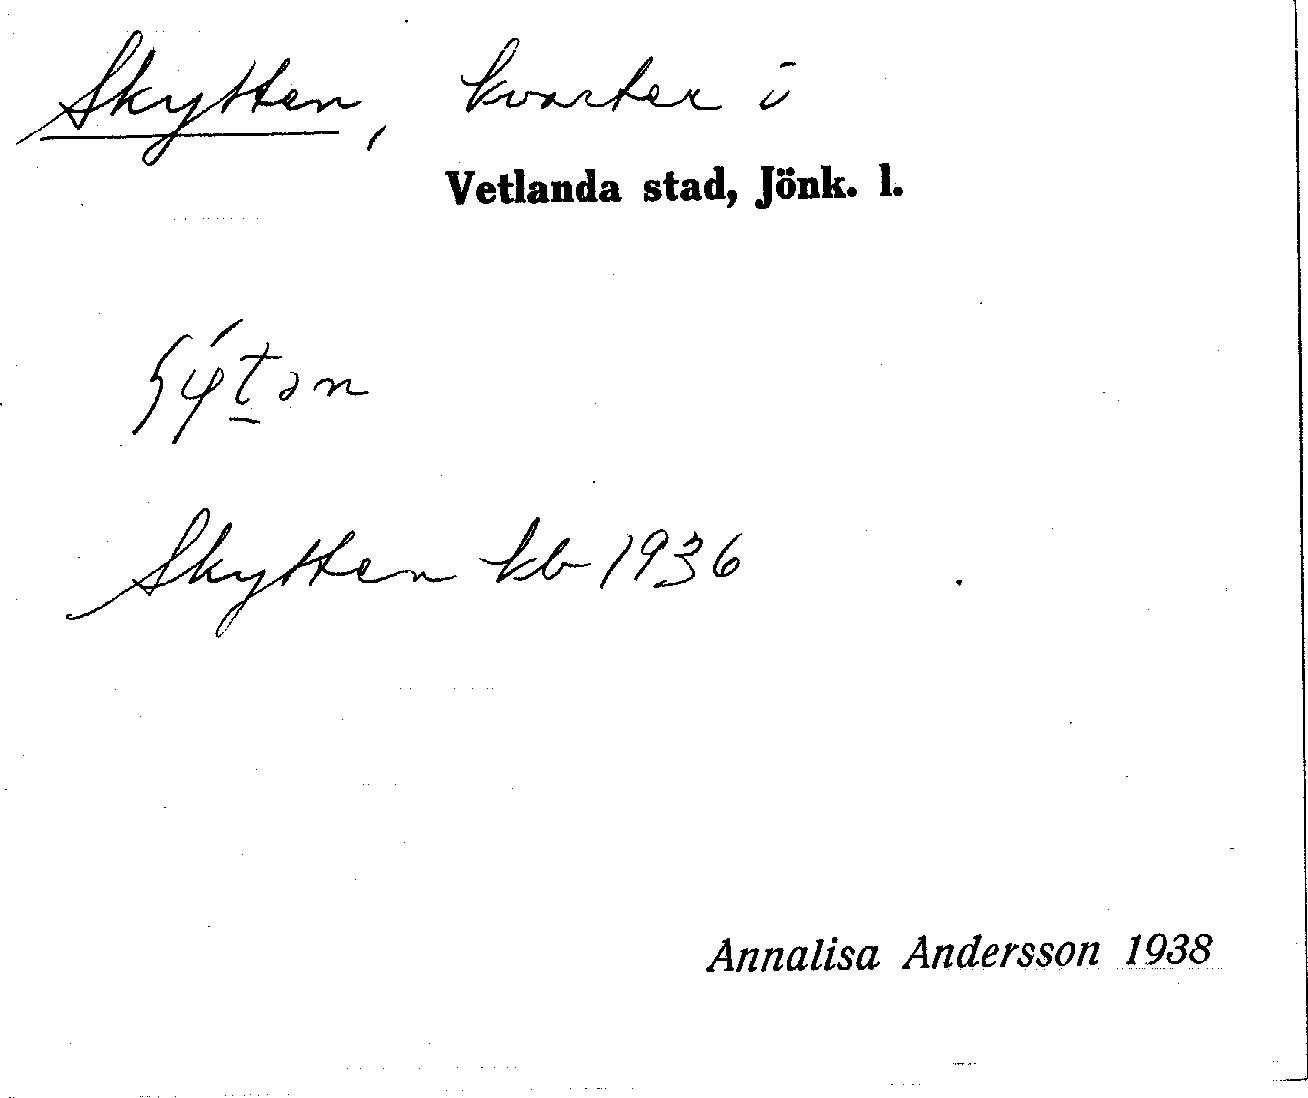 Skytten, kvarter i
Vetlanda stad, Jönk. l.
Skytten kb 1936
Annalisa Andersson 1938